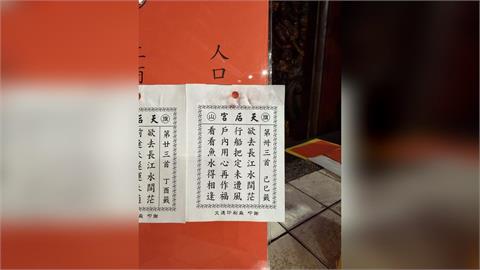 人口
旗 天后宮 山
第卅三首 己巳籤
欲去長江水闊茫
行船把定未遭風
戶內用心再作福
看看魚水得相逢
文通印刷廠 叩謝
旗 天后
第廿三首 丁酉籤
欲去長江水闊茫
叩謝